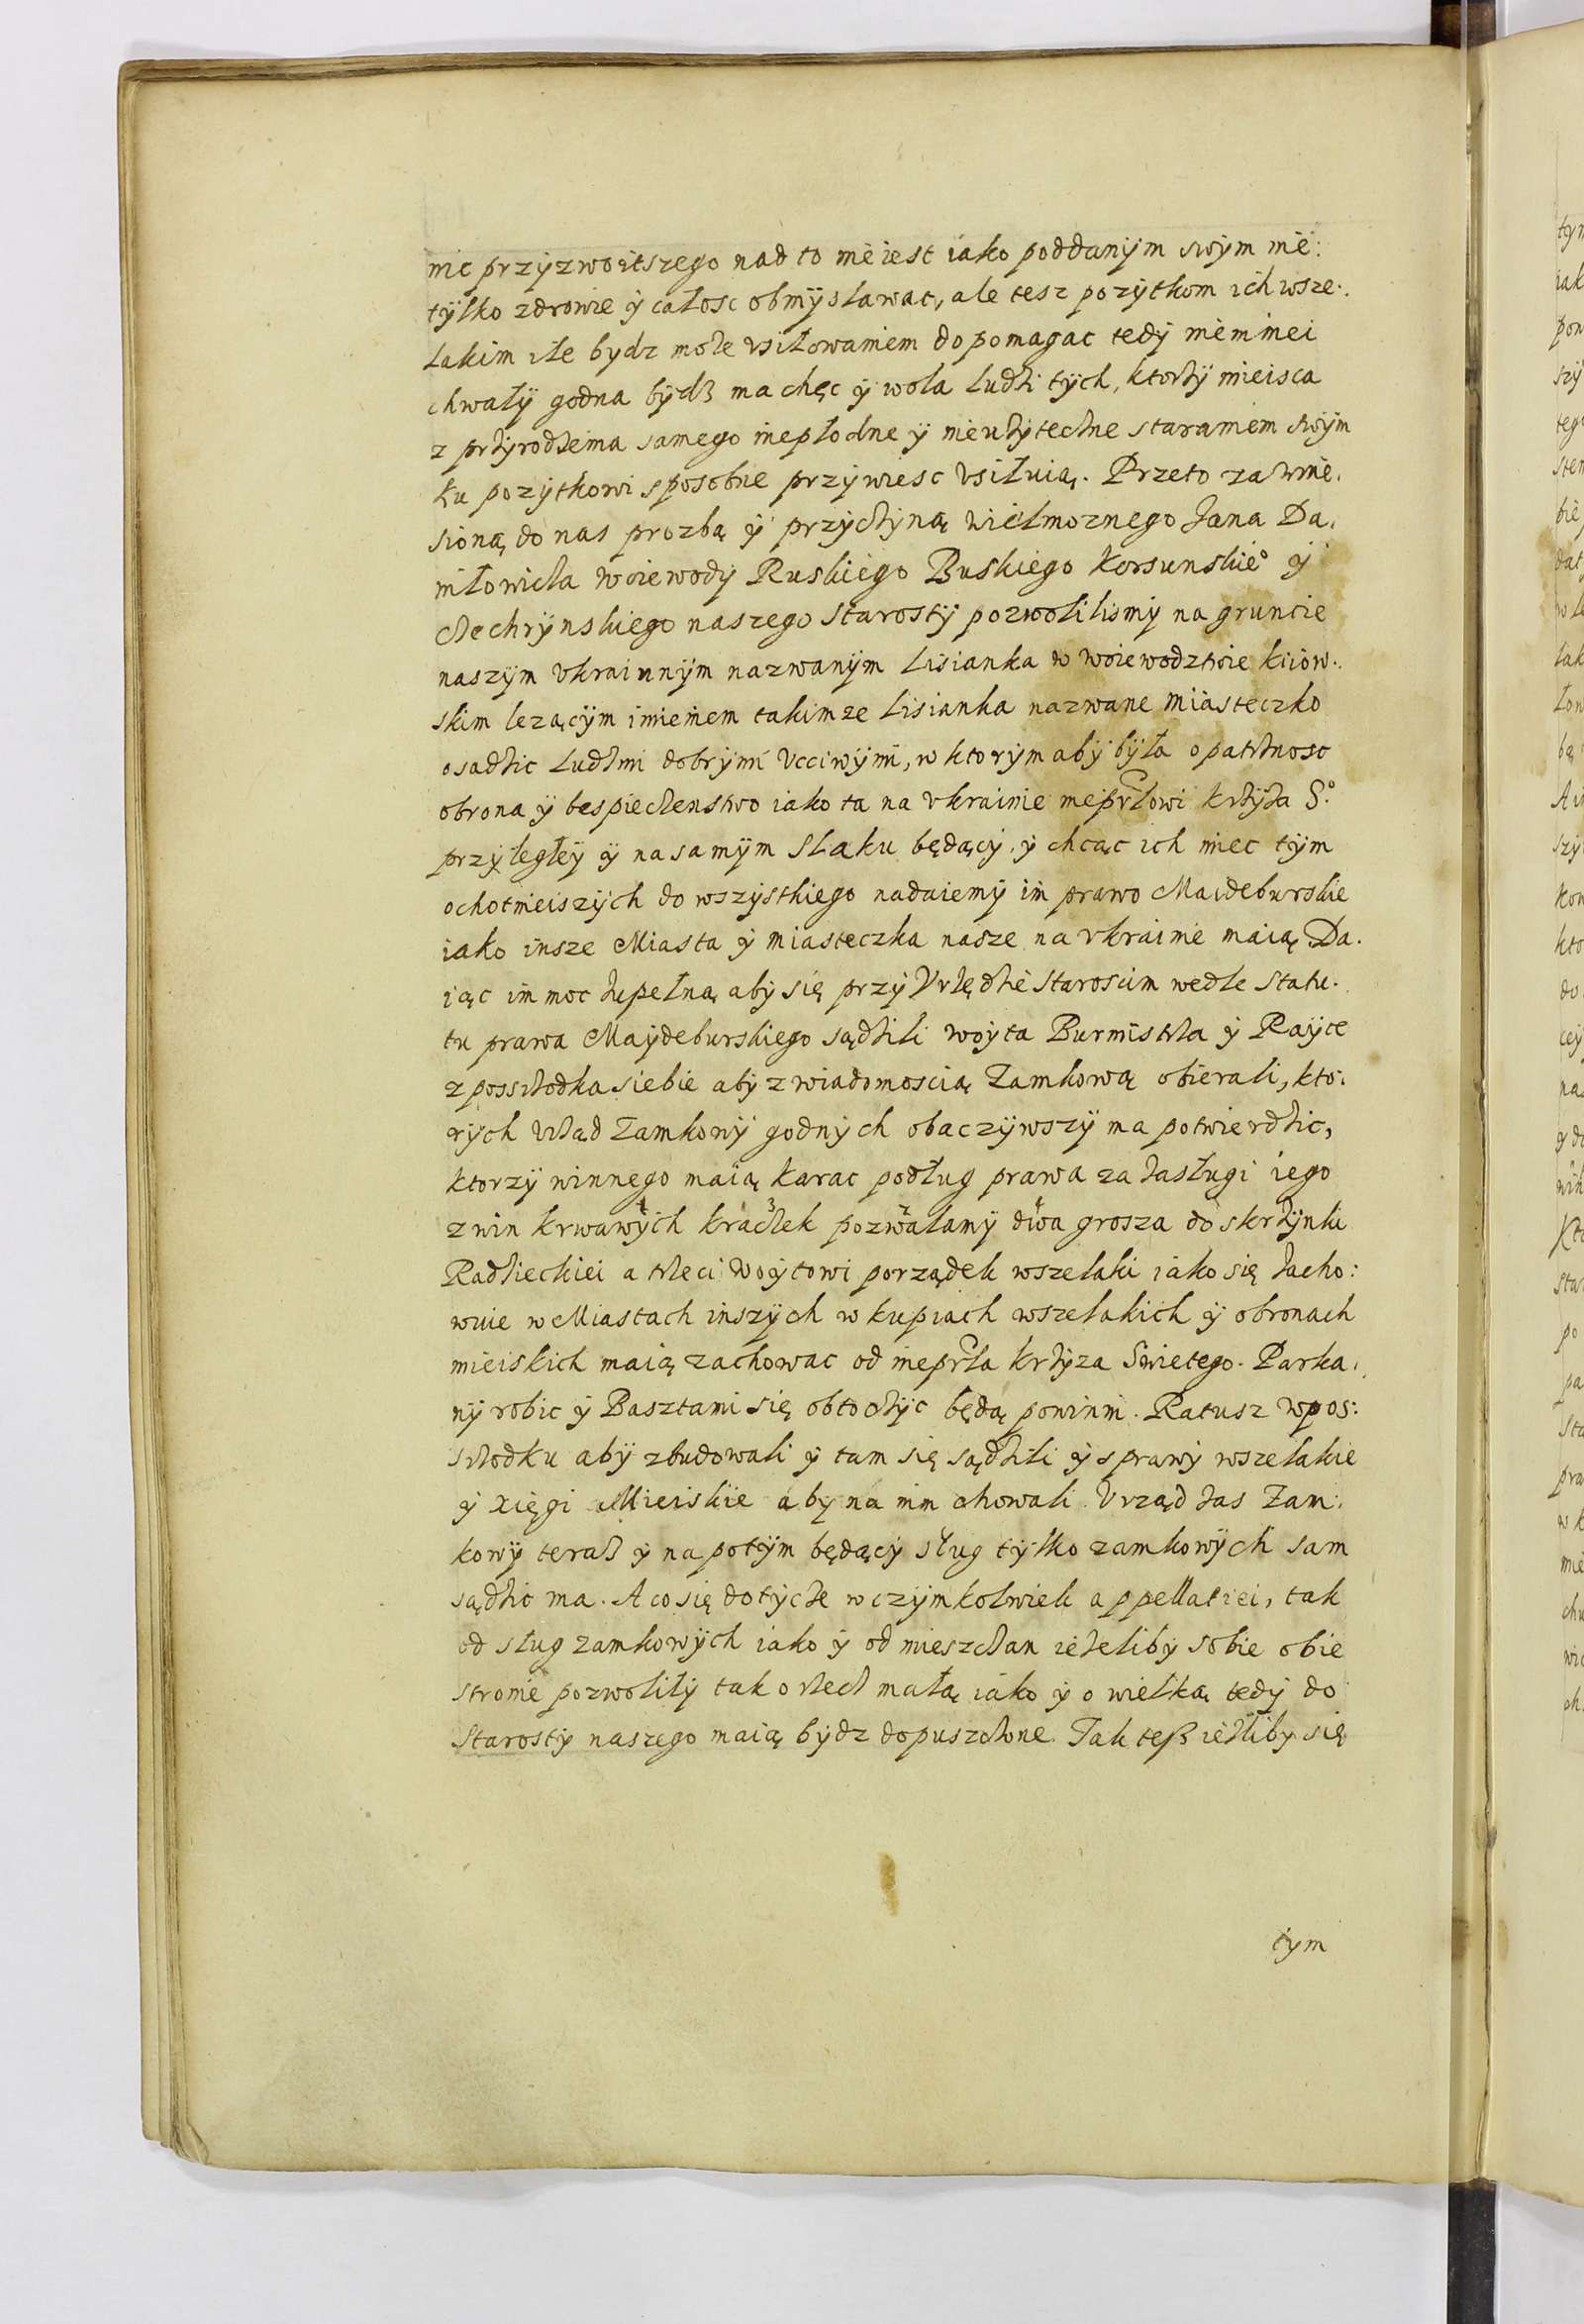 nic przÿzwoitszego nad to nie iest iako poddanÿm swÿm nie:
tÿlko zdrowie ÿ całosc obmÿslawac, ale tesz pozÿtkom ich wsze:
lakim ile bydz może vsiłowaniem dopomagac tedÿ niemniei
chwałÿ godna bÿdz ma chęc ÿ wola ludzi tÿch, ktorzÿ mieisca
z przÿrodzenia samego niepłodne ÿ nieużÿteczne staraniem swÿm
ku pozÿtkowi sposobne przÿwiesc vsiłuią. Przeto za wnie.
sioną do nas prozbą ÿ przÿczÿną wielmoznego Jana Da.
niłowicza woiewodÿ Ruskiego Buskiego Korsunskie° ÿ
Czechrÿnskiego naszego Starostÿ pozwolilismÿ na gruncie
naszÿm vkrainnÿm nazwanÿm Lisianka w woiewodztwie kiiow:
skim lezącÿm imieniem takimze Lisianka nazwane miasteczko
osadzic ludzmi dobrÿmi vcciwÿmi, w ktorÿm abÿ bÿła opatrznosc
obrona ÿ bespieczenstwo iako ta na vkrainie nieprzlowi krzÿża S°.
przÿległeÿ ÿ na samÿm Slaku będącÿ, ÿ chcąc ich miec tÿm
ochotnieiszÿch do wszÿstkiego nadaiemÿ im prawo Maideburskie
iako insze Miasta ÿ miasteczka nasze na vkrainie maią Da.
iąc im moc zupełną abÿ się przÿ Vrzędzie Staroscim wedle Statu.
tu prawa Maÿdeburskiego sądzili woÿta Burmistrza ÿ Raÿce
z possrzodka siebie abÿ z wiadomoscią Zamkową obierali, kto:
rÿch vrząd Zamkowÿ godnÿch obaczÿwszÿ ma potwierdzic,
ktorzÿ winnego maią karac podług prawa za zasługi iego
z win krwawÿch kraczek pozwalamÿ dwa grosza do skrzÿnki
Radzieckiei a trzeci Woÿtowi porządek wszelaki iako się zacho:
wuie w Miastach inszÿch w kupiach wszelakich ÿ obronach
mieiskich maią zachowac od nieprzla krzÿza Swietego. Parka.
nÿ robic ÿ Basztami się obtoczÿc będą powinni. Ratusz wpos:
srzodku abÿ zbudowali ÿ tam się sądzili ÿ sprawÿ wszelakie
ÿ xięgi Mieiskie abÿ na nim chowali. Vrząd zas Zam:
kowÿ teraz ÿ na potÿm będącÿ sług tÿlko zamkowÿch sam
sądzic ma. A co się dotÿcze w czÿmkolwiek appellatiei, tak
od sług zamkowÿch iako ÿ od mieszczan ieżelibÿ sobie obie
stronie pozwolilÿ tak o rzecz małą iako ÿ o wielką tedÿ do
Starostÿ naszego maią bÿdz dopuszczone. Tak teß ieżlibÿ się
tym